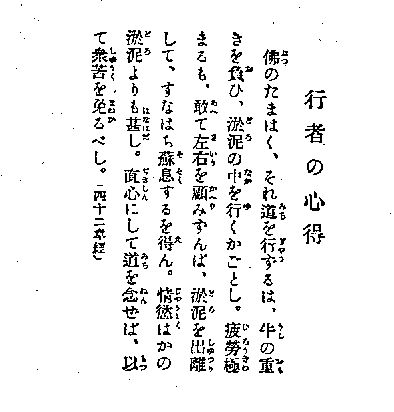 行者の心得
佛のたまはく、それ道を行ずるは、牛の重
きを負ひ、淤泥の中を行くがごとし。疲勞極
まるも、敢て左右を顧みずんば、淤泥を出離
して、すなはち蘇息するを得ん。情慾はかの
淤泥よりも甚し。直心にして道を念せば、以
て衆苦を免るべし。(四十二章經)